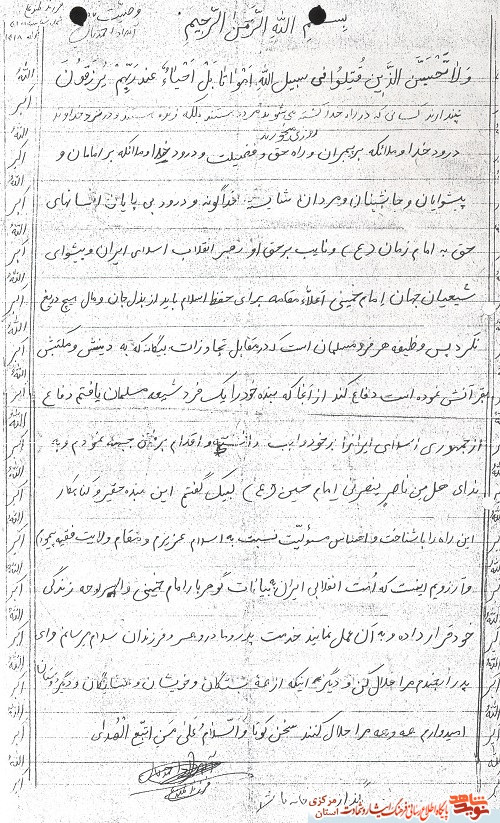 وصیت
بسم الله الرحمن الرحیم
وَلا تَحْسَبَنَّ الَّذینَ قُتِلُوا فی سبیل الله اَمْواتا بَلْ اَحْیاءٌ عِندَ رَبِّهِمْ یُرْزَقُونَ
پندارید کسانی که در راه خدا کشته می‌شوند مرده هستند بلکه زنده هستند و در نزد خداوند
روزی میخورند
درود خدا و ملائکه بر پیمبران و راه حق و فضیلت و درود خدا و ملائکه بر امامان و
پیشوایان و جانشینان و مردان شایسته خداگونه و درود بی پایان انسانهای
حق به امام زمان (عج) و نایب برحق او رهبر انقلاب اسلامی ایران و پیشوای
شیعیان جهان امام خمینی اعلاء مقامه برای حفظ اسلام باید از بذل جان و مال هیچ دریغ
نکرد پس وظیفه هر فرد مسلمان است که در مقابل تجاوزات بیگانه که به دینش و مکتبش
و قرآنش نموده است دفاع کند از آنجا که بنده خود را یک فرد شیعه مسلمان یافتم دفاع
از جمهوری اسلامی ایران را بر خود واجب دانسته و اقدام برفتن جبهه نمودم و به
ندای هل من ناصر ینصرنی امام حسین (ع) لبیک گفتم این بنده حقیر و گنهکار
این راه را با شناخت و احساس مسئولیت نسبت به اسلام عزیزم و مقام ولایت فقیه پیمودم
و آرزویم اینست که امت انقلابی ایران بیانات گوهربار امام خمینی را سرلوحه زندگی
خود قرار داده و به آن عمل نمایند خدمت پدر و مادر و همسر و فرزندان سلام برسانم و ای
پدر ارجمندم مرا حلال کن و دیگر اینکه از همه بستگان و خویشان و همسایگان و دیگر دوستان
امیدوارم همه و همه مرا حلال کنند سخن کوتاه وَالسَّلامُ عَلی مَنِ اتَّبَعَ الْهُدی
الله اکبر
الله اکبر
الله اکبر
الله اکبر
الله اکبر
الله اکبر
الله اکبر
نوید شاهد
مرکزی
پایگاه اطلاع رسانی فرهنگ ایثار و شهادت استان